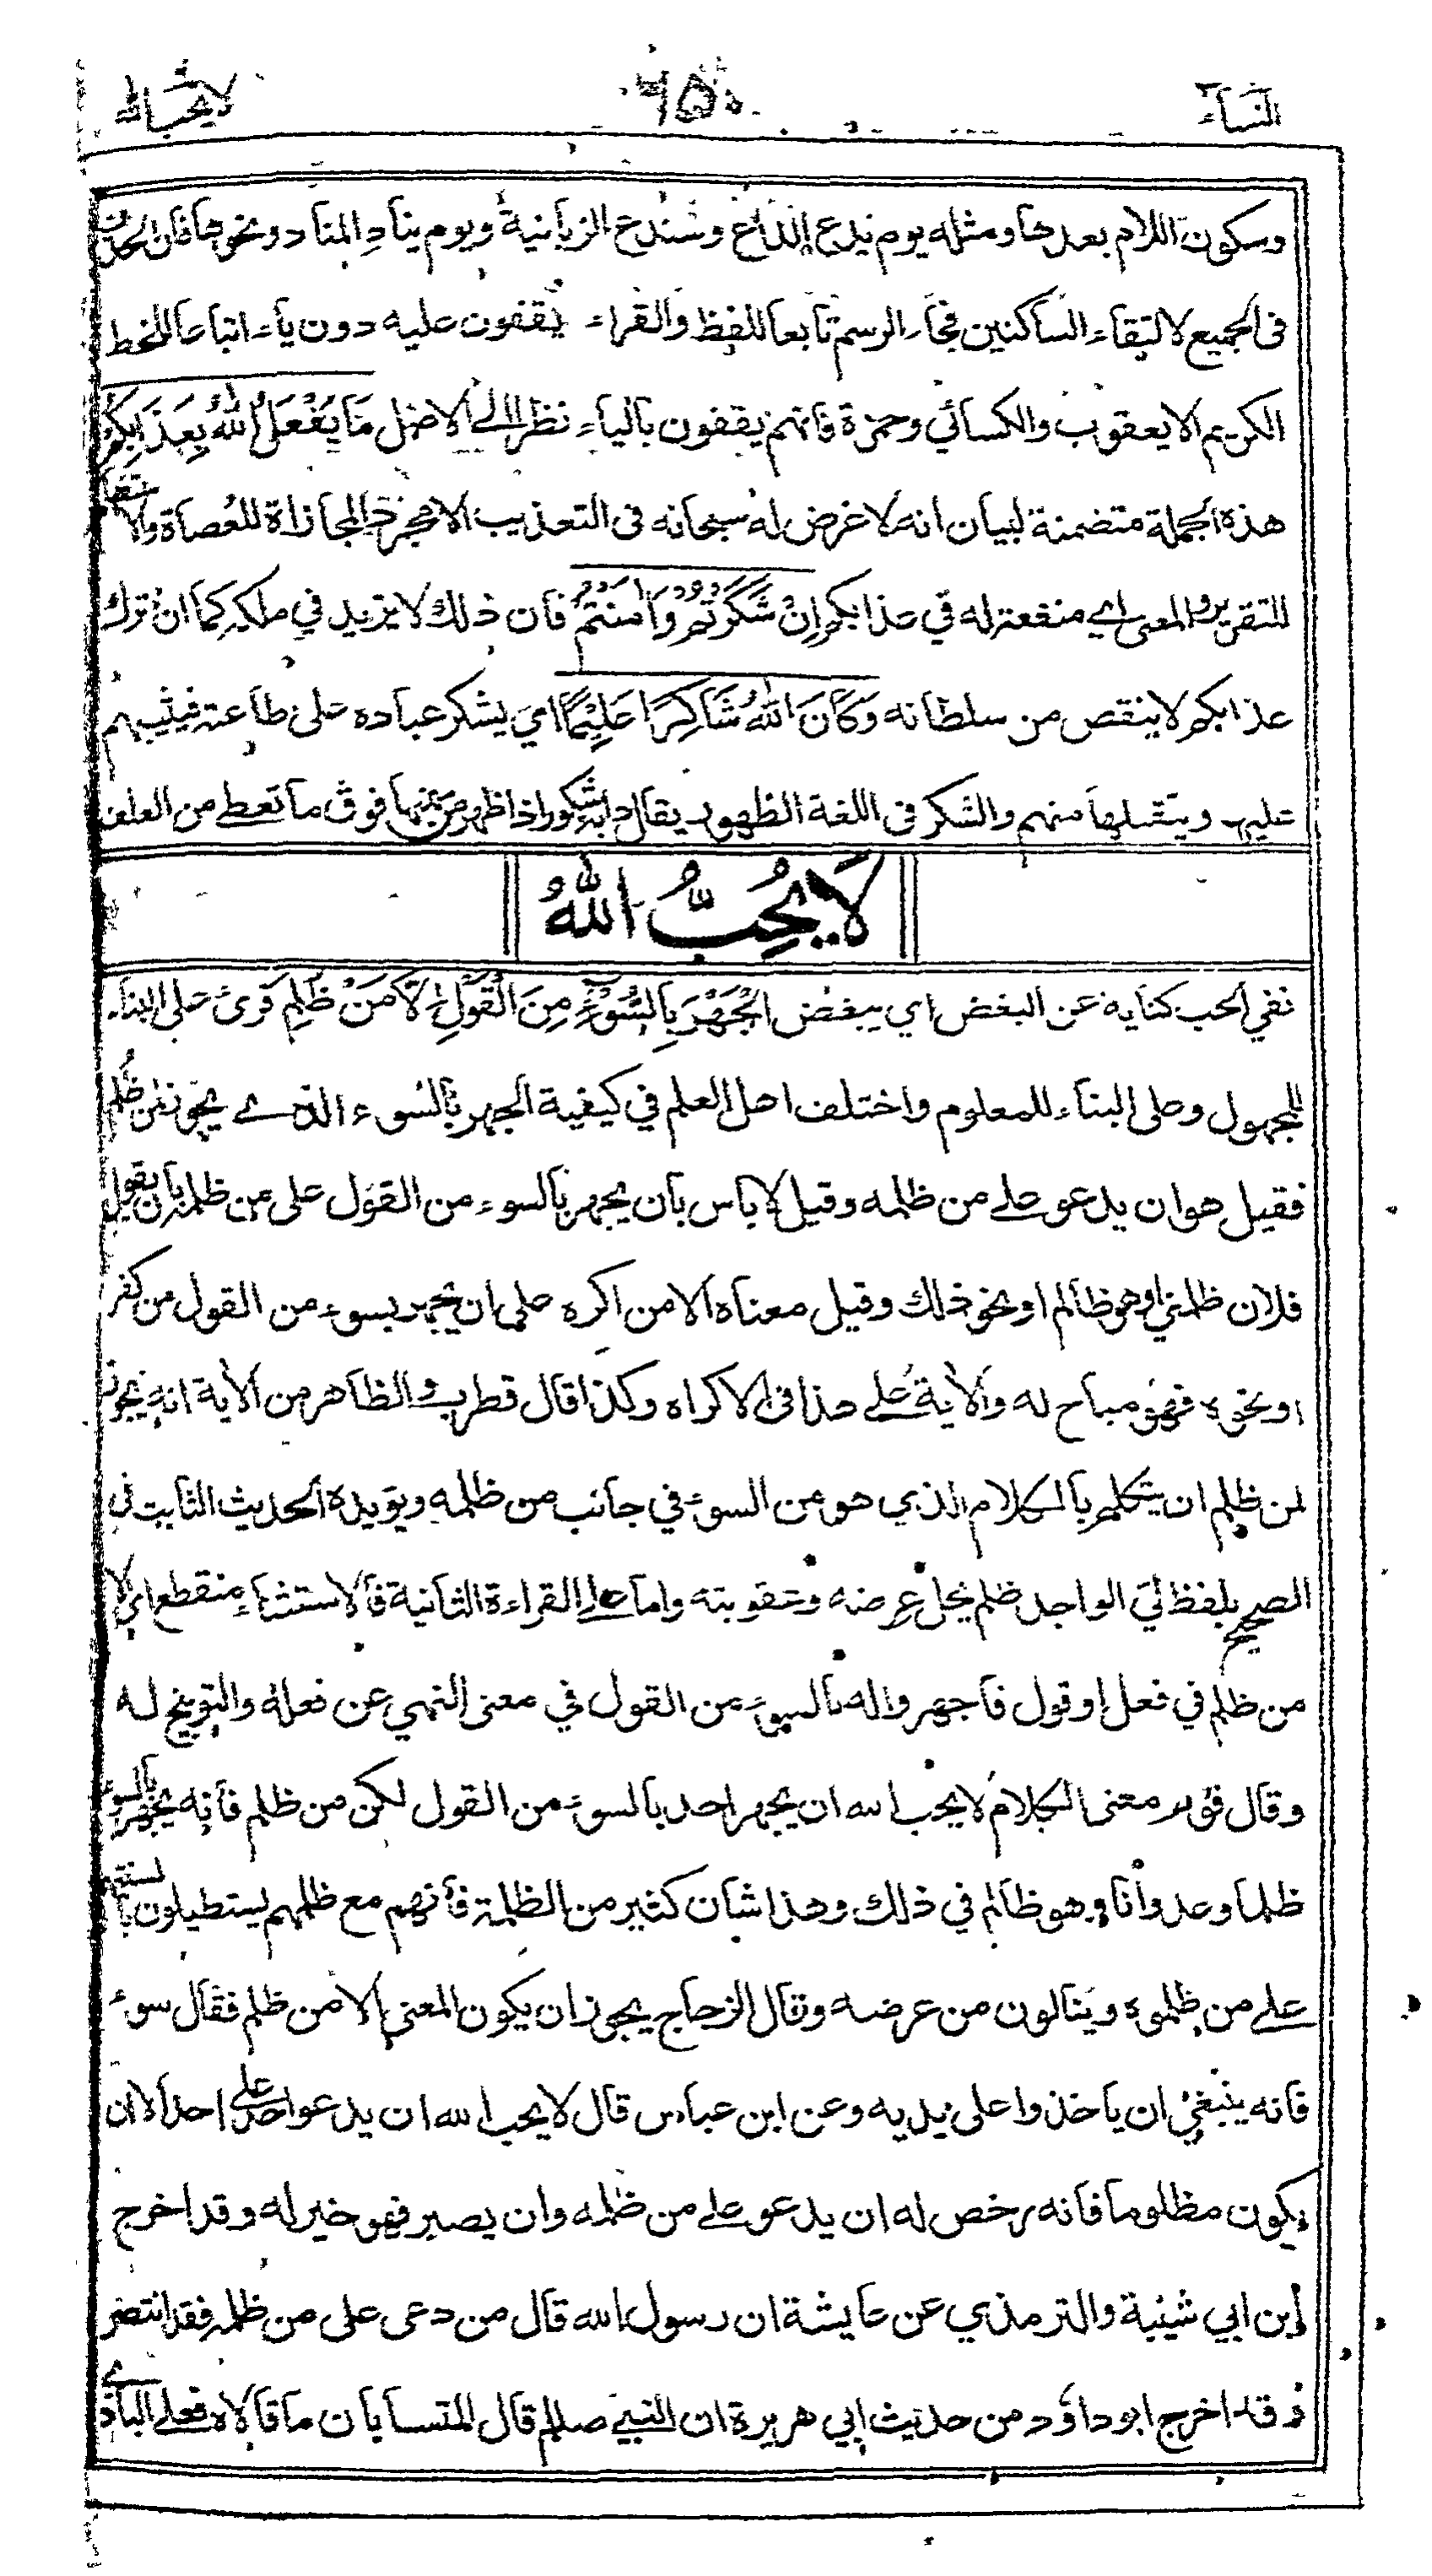 النساء ٦٥٠ لا يحب الله
وسكون اللام بعدها ومثله يوم يدع الداع وسندع الزبانية ويوم يناد المناد ونحوها فان الحذف
فى الجميع لالتقاء الساكنين فجاء الرسم تابعا للفظ والقراء يقفون عليه دون ياء اتباعا للخط
الكريم الا يعقوب والكسائي وحمزة فانهم يقفون بالياء نظرا الى الاصل مَا يَفْعَلُ اللّٰهُ بِعَذَابِكُمْ
هذه الجملة متضمنة لبيان انه لا غرض له سبحانه فى التعذيب الا مجرد المجازاة للعصاة والاستفهام
للتقرير والمعنى اي منفعة له في عذابكم اِنْ شَكَرْتُمْ وَاٰمَنْتُمْ فان ذلك لا يزيد في ملكه كما ان ترك
عذابكم لا ينقص من سلطانه وَكَانَ اللّٰهُ شَاكِرًا عَلِيْمًا اي يشكر عباده على طاعته فيثيبهم
عليها ويتقبلها منهم والشكر فى اللغة الظهور يقال دابة شكور اذا ظهر من سمنها فوق ما تعطى من العلف
لَا يُحِبُّ اللّٰهُ
نفي الحب كناية عن البغض اي يبغض الْجَهْرَ بِالسُّوْءِ مِنَ الْقَوْلِ اِلَّا مَنْ ظُلِمَ قرئ على البناء
للمجهول وعلى البناء للمعلوم واختلف اهل العلم في كيفية الجهر بالسوء الذي يجوز لمن ظلم
فقيل هو ان يدعو على من ظلمه وقيل لا باس بان يجهر بالسوء من القول على من ظلمه بان يقول
فلان ظلمني او هو ظالم او نحو ذلك وقيل معناه الا من اكره على ان يجهر بسوء من القول من كفر
او نحوه فهو مباح له والاية على هذا فى الاكراه وكذا قال قطرب والظاهر من الاية انه يجوز
لمن ظلم ان يتكلم بالكلام الذي هو من السوء في جانب من ظلمه ويؤيده الحديث الثابت فى
الصحيح بلفظ ليّ الواجد ظلم يحل عرضه وعقوبته واما على القراءة الثانية فالاستثناء منقطع اي الا
من ظلم في فعل او قول فاجهروا له بالسوء من القول في معنى النهي عن فعله والتوبيخ له
وقال قوم معنى الكلام لا يحب الله ان يجهر احد بالسوء من القول لكن من ظلم فانه يجهر بالسوء
ظلما وعدوانا وهو ظالم في ذلك وهذا شان كثير من الظلمة فانهم مع ظلمهم يستطيلون بالسنتهم
على من ظلموه وينالون من عرضه وقال الزجاج يجوز ان يكون المعنى الا من ظلم فقال سوء
فانه ينبغي ان ياخذوا على يديه وعن ابن عباس قال لا يحب الله ان يدعو احد على احد الا ان
يكون مظلوما فانه رخص له ان يدعو على من ظلمه وان يصبر فهو خير له وقد اخرج
ابن ابي شيبة والترمذي عن عايشة ان رسول الله قال من دعى على من ظلمه فقد انتصر
وقد اخرج ابو داؤد من حديث ابي هريرة ان النبي صللم قال المتسابان ما قالاه فعلى البادي